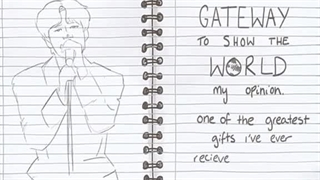 GATEWAY
TO SHOW THE
WORLD
my opinion.
one of the greatest
gifts i've ever
recieve